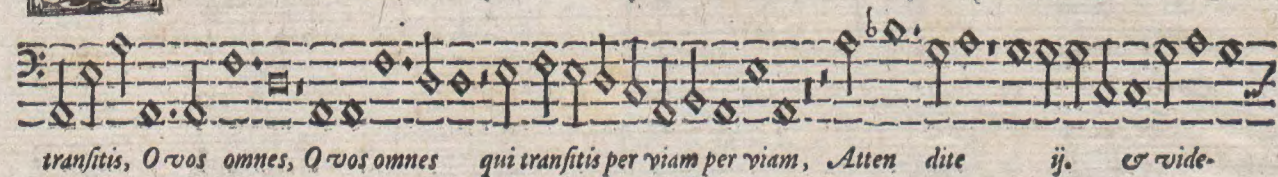 tranſitis, O vos omnes, O vos omnes qui tranſitis per viam per viam, Atten dite ij. & vide-